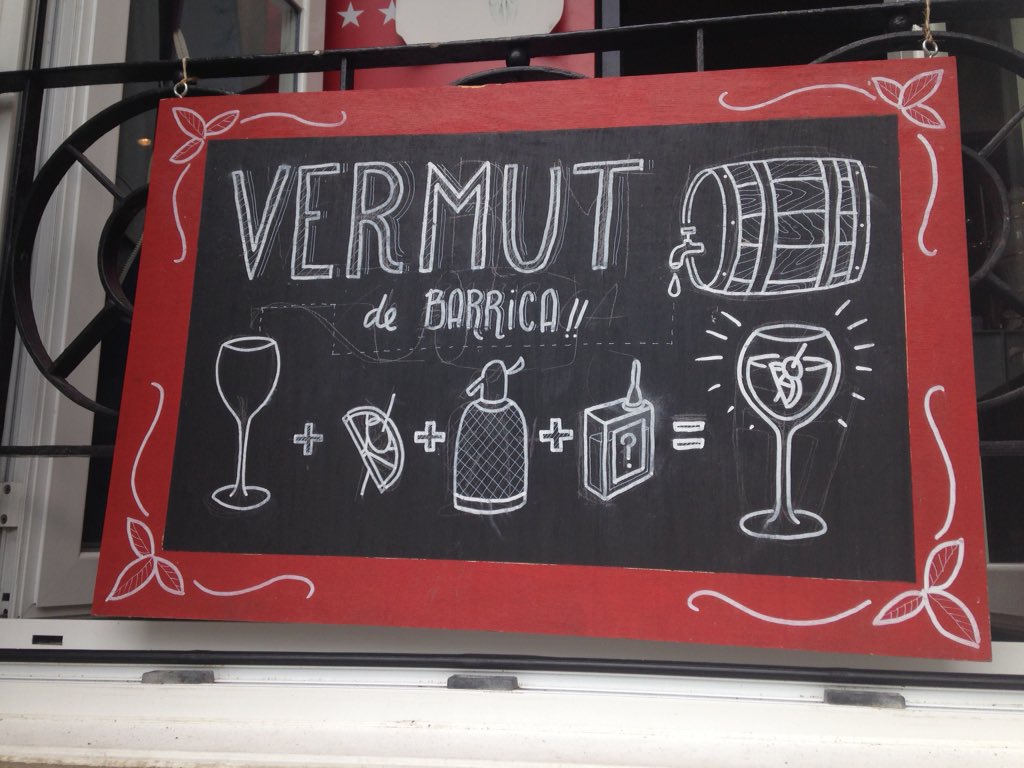 VERMUT
de BARRiCA!!
+ + + =
?